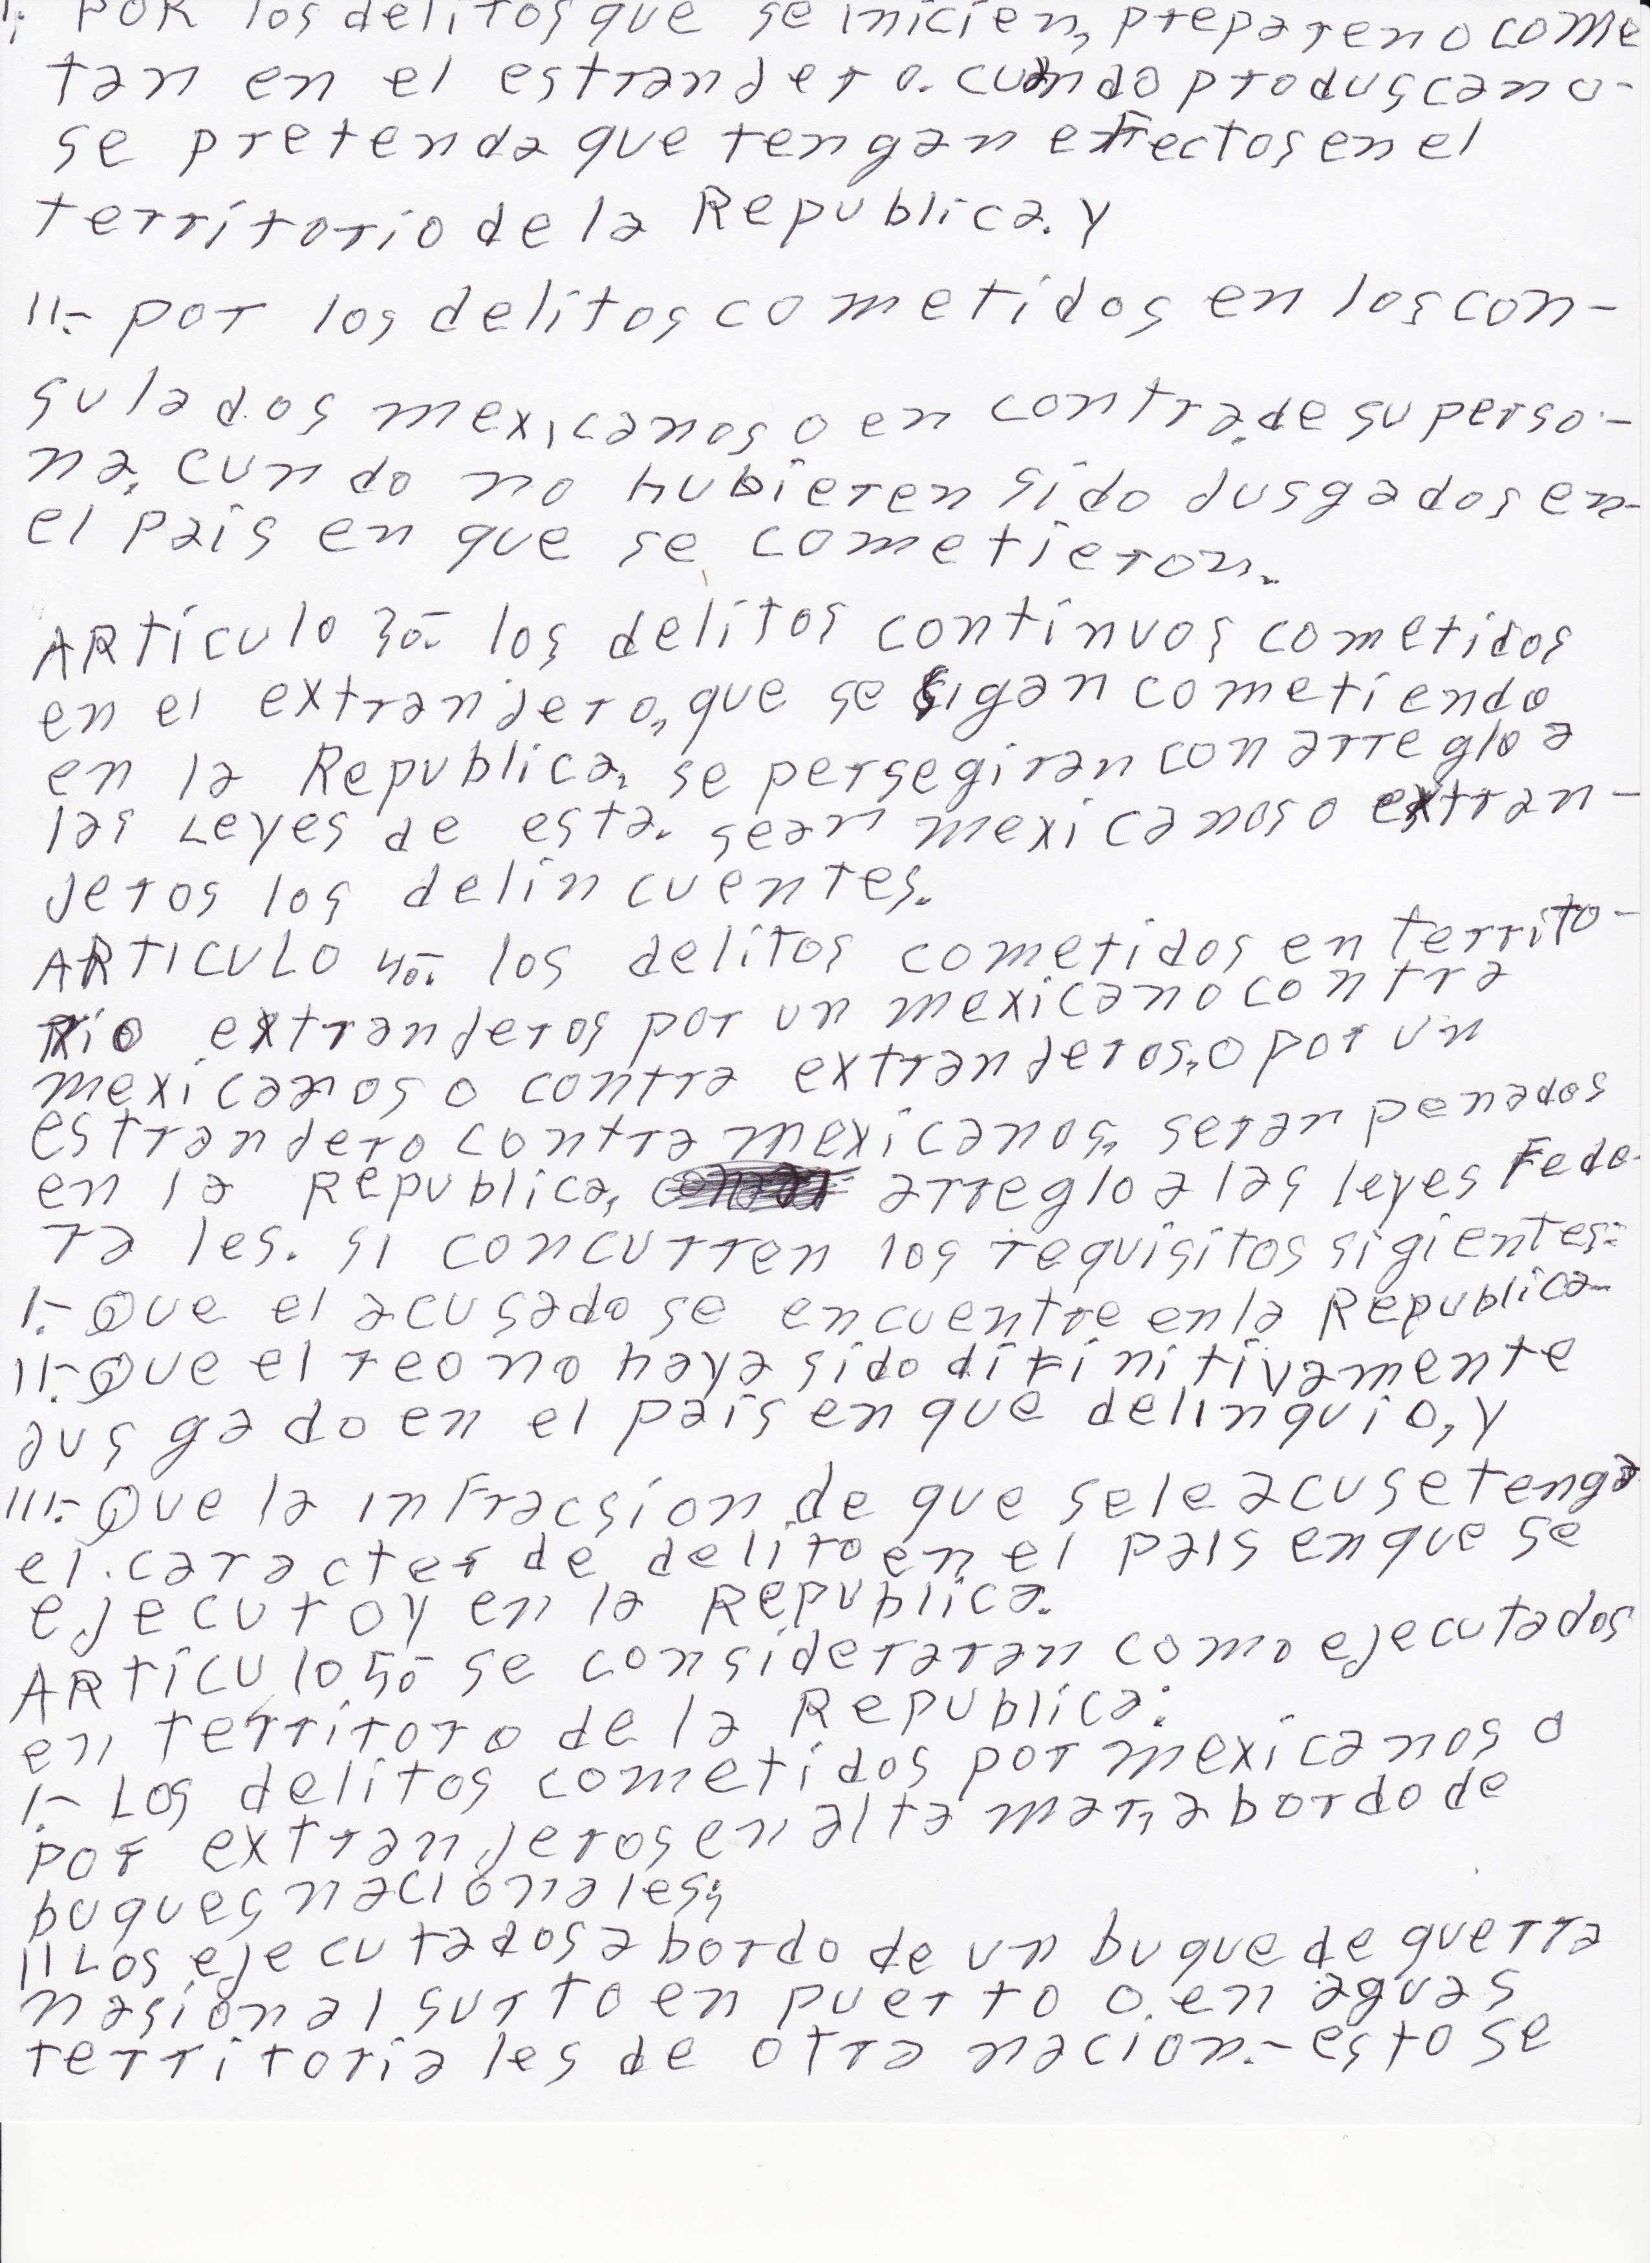 I. POR los delitos que se inicien, preparen o come
tan en el estrandero. cuando produscan o-
se pretenda que tengan effectos en el
territorio de la Republica. y
II.- por los delitos cometidos en los con-
sulados mexicanos o en contra de su perso-
na. cundo no hubieren sido dusgados en-
el pais en que se cometieron.
ARTículo 3o.- los delitos continuos cometidos
en el extranjero, que se sigan cometiendo
en la Republica, se persegiran con arreglo a
las Leyes de esta. sean mexicanos o extran-
jeros los delincuentes.
ARTICULO 4o.- los delitos cometidos en territo-
Rio extranderos por un mexicano contra
mexicanos o contra extranderos, o por un
estrandero contra mexicanos, seran penados
en la Republica, arreglo a las leyes Fede-
rales. si concurren los requisitos sigientes:
I.- Que el acusado se encuentre en la Republica-
II.- Que el reo no haya sido difinitivamente
jusgado en el pais en que delinquio, y
III.- Que la infracsion de que se le acuse tenga
el caracter de delito en el pais en que se
ejecuto y en la Republica.
ARTículo 5o- se consideraran como ejecutados
en territoro de la Republica:
I.- Los delitos cometidos por mexicanos o
por extranjeros en alta mar, a bordo de
buques nacionales;
II Los ejecutados a bordo de un buque de guerra
nasional surto en puerto o en aguas
territoriales de otra nacion.- esto se